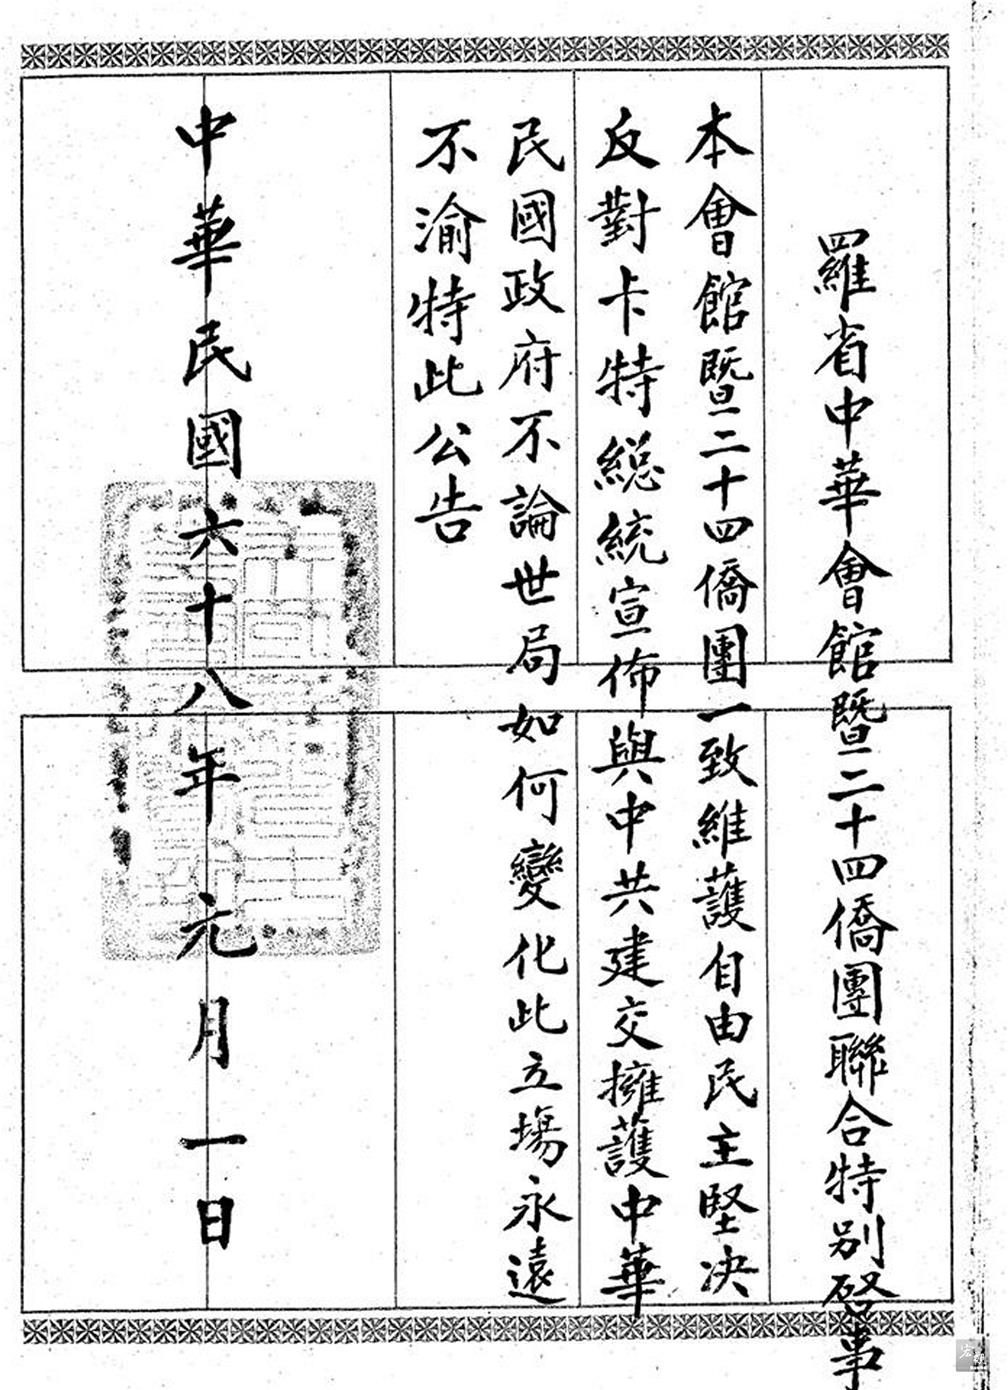 羅省中華會館暨二十四僑團聯合特別啓事
本會館暨二十四僑團一致維護自由民主堅決
反對卡特總統宣佈與中共建交擁護中華
民國政府不論世局如何變化此立場永遠
不渝特此公告
中華民國六十八年元月一日